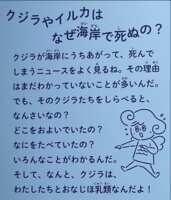 クジラやイルカは
なぜ海岸で死ぬの?
クジラが海岸にうちあがって、死んで
しまうニュースをよく見るね。その理由
はまだわかっていないことが多いんだ。
でも、そのクジラたちをしらべると、
なんさいなの?
どこをおよいでいたの?
なにをたべていたの?
いろんなことがわかるんだ。
そして、なんと、クジラは、
わたしたちとおなじほ乳類なんだよ!